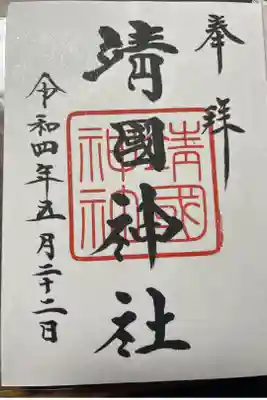 奉拝
靖國神社
靖國
神社
令和四年五月二十二日